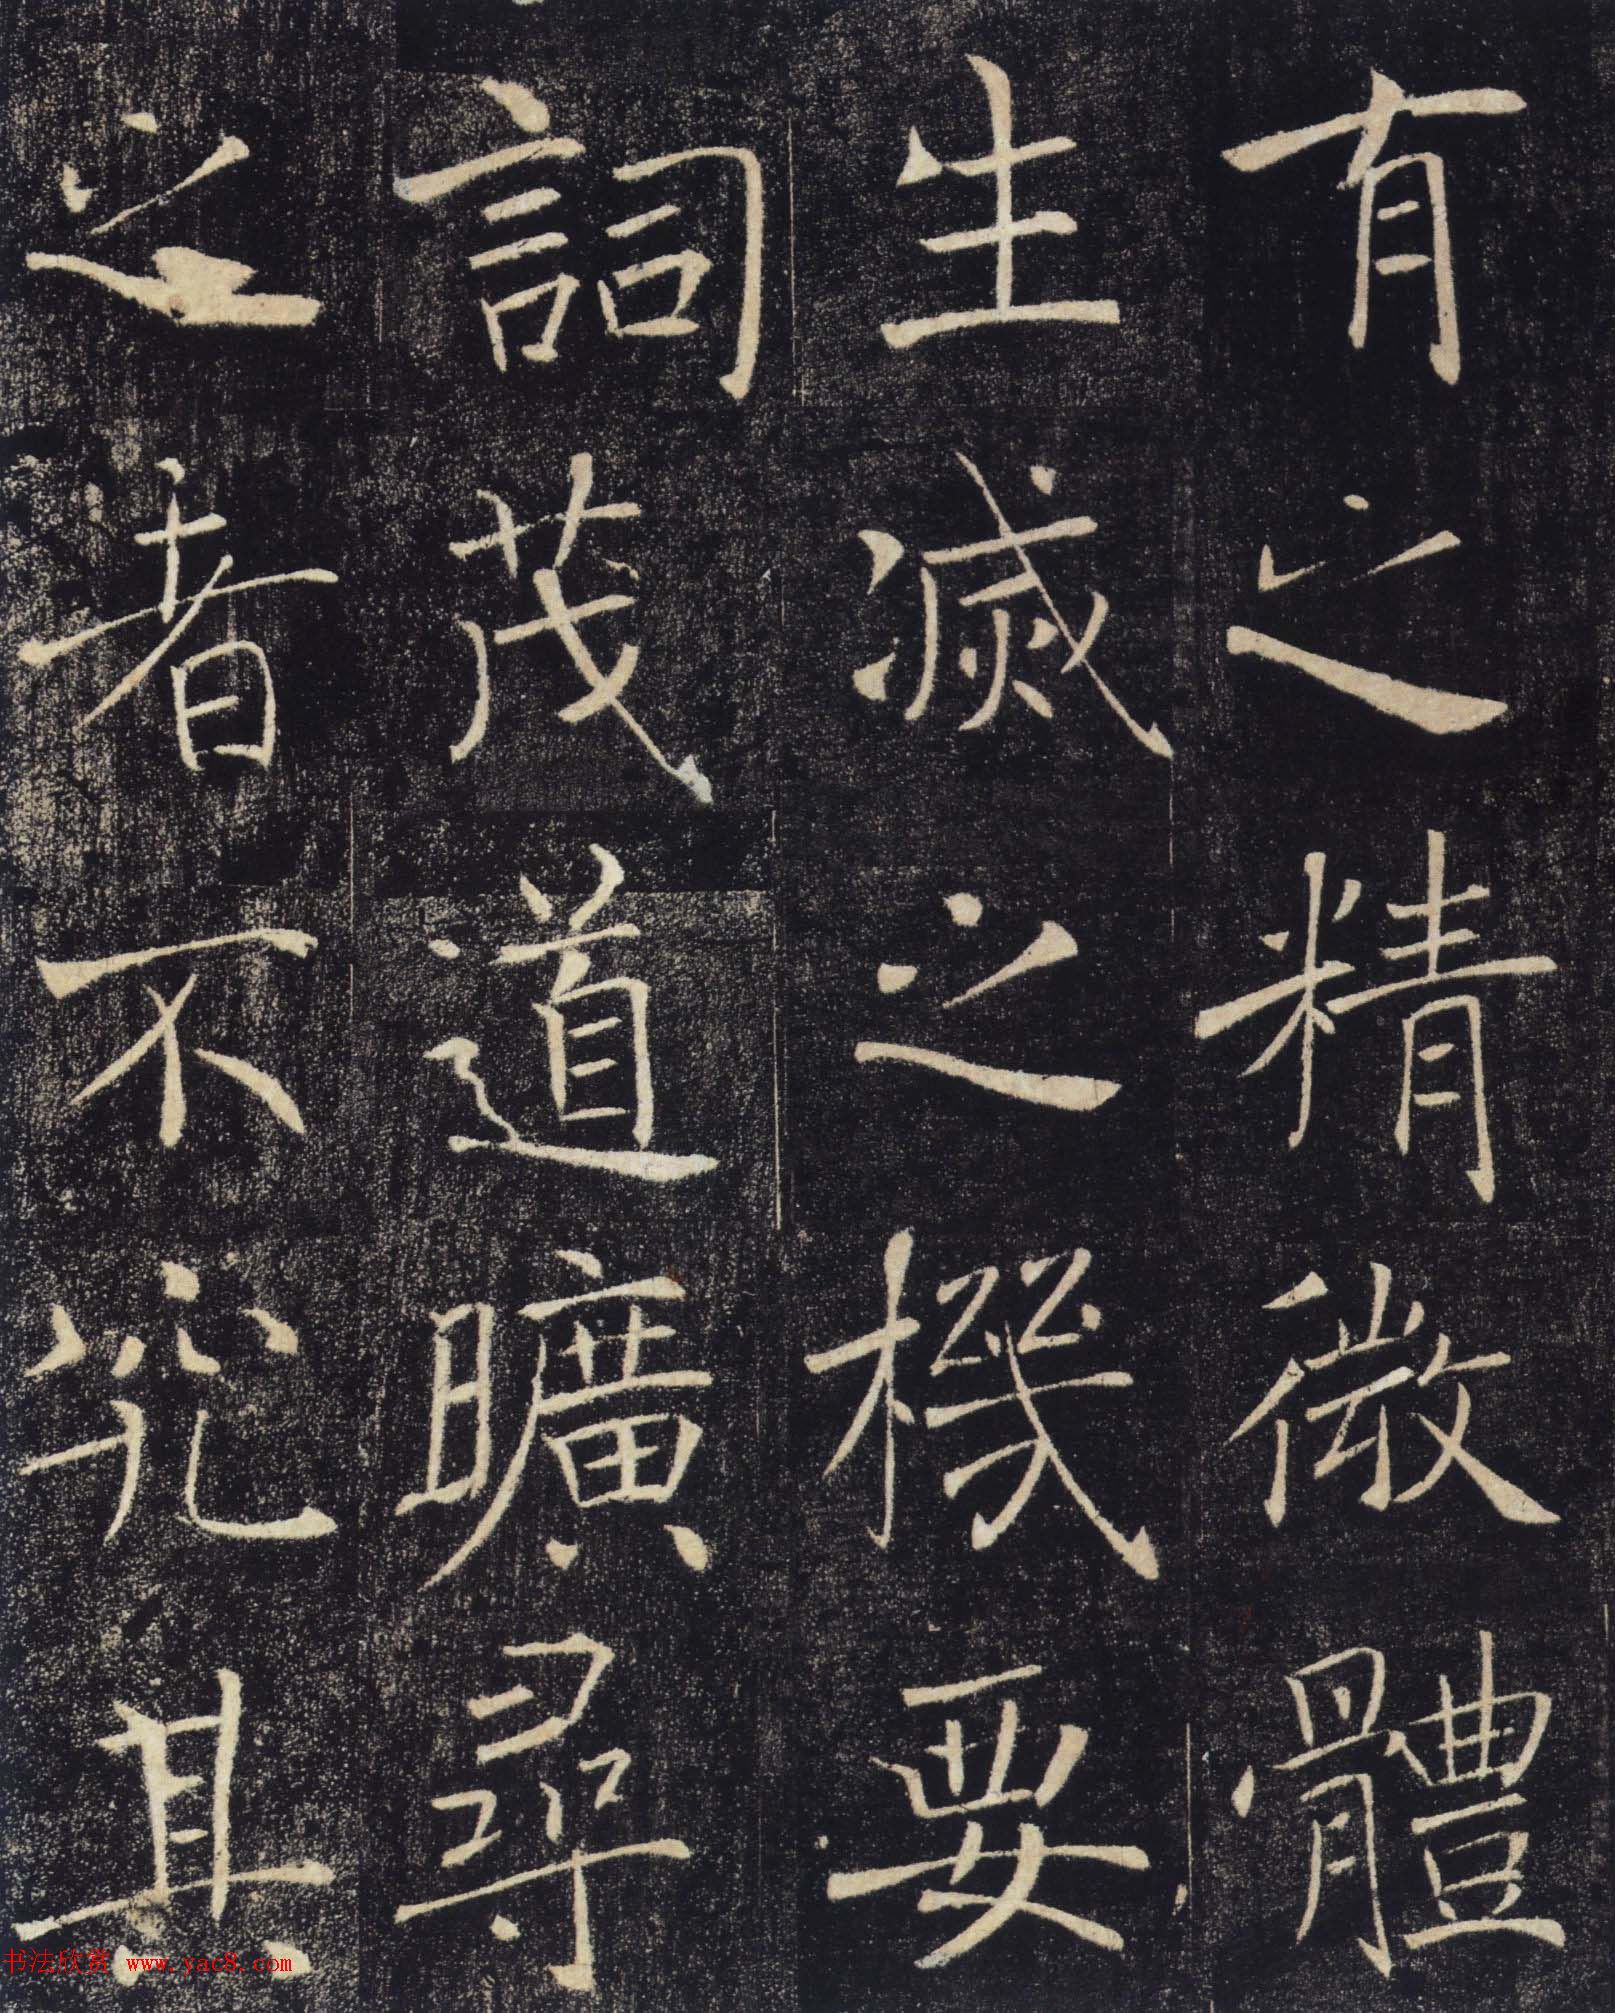 有之精微體
生滅之機要
詞茂道曠尋
之者不究其
书法欣赏 www.yac8.com